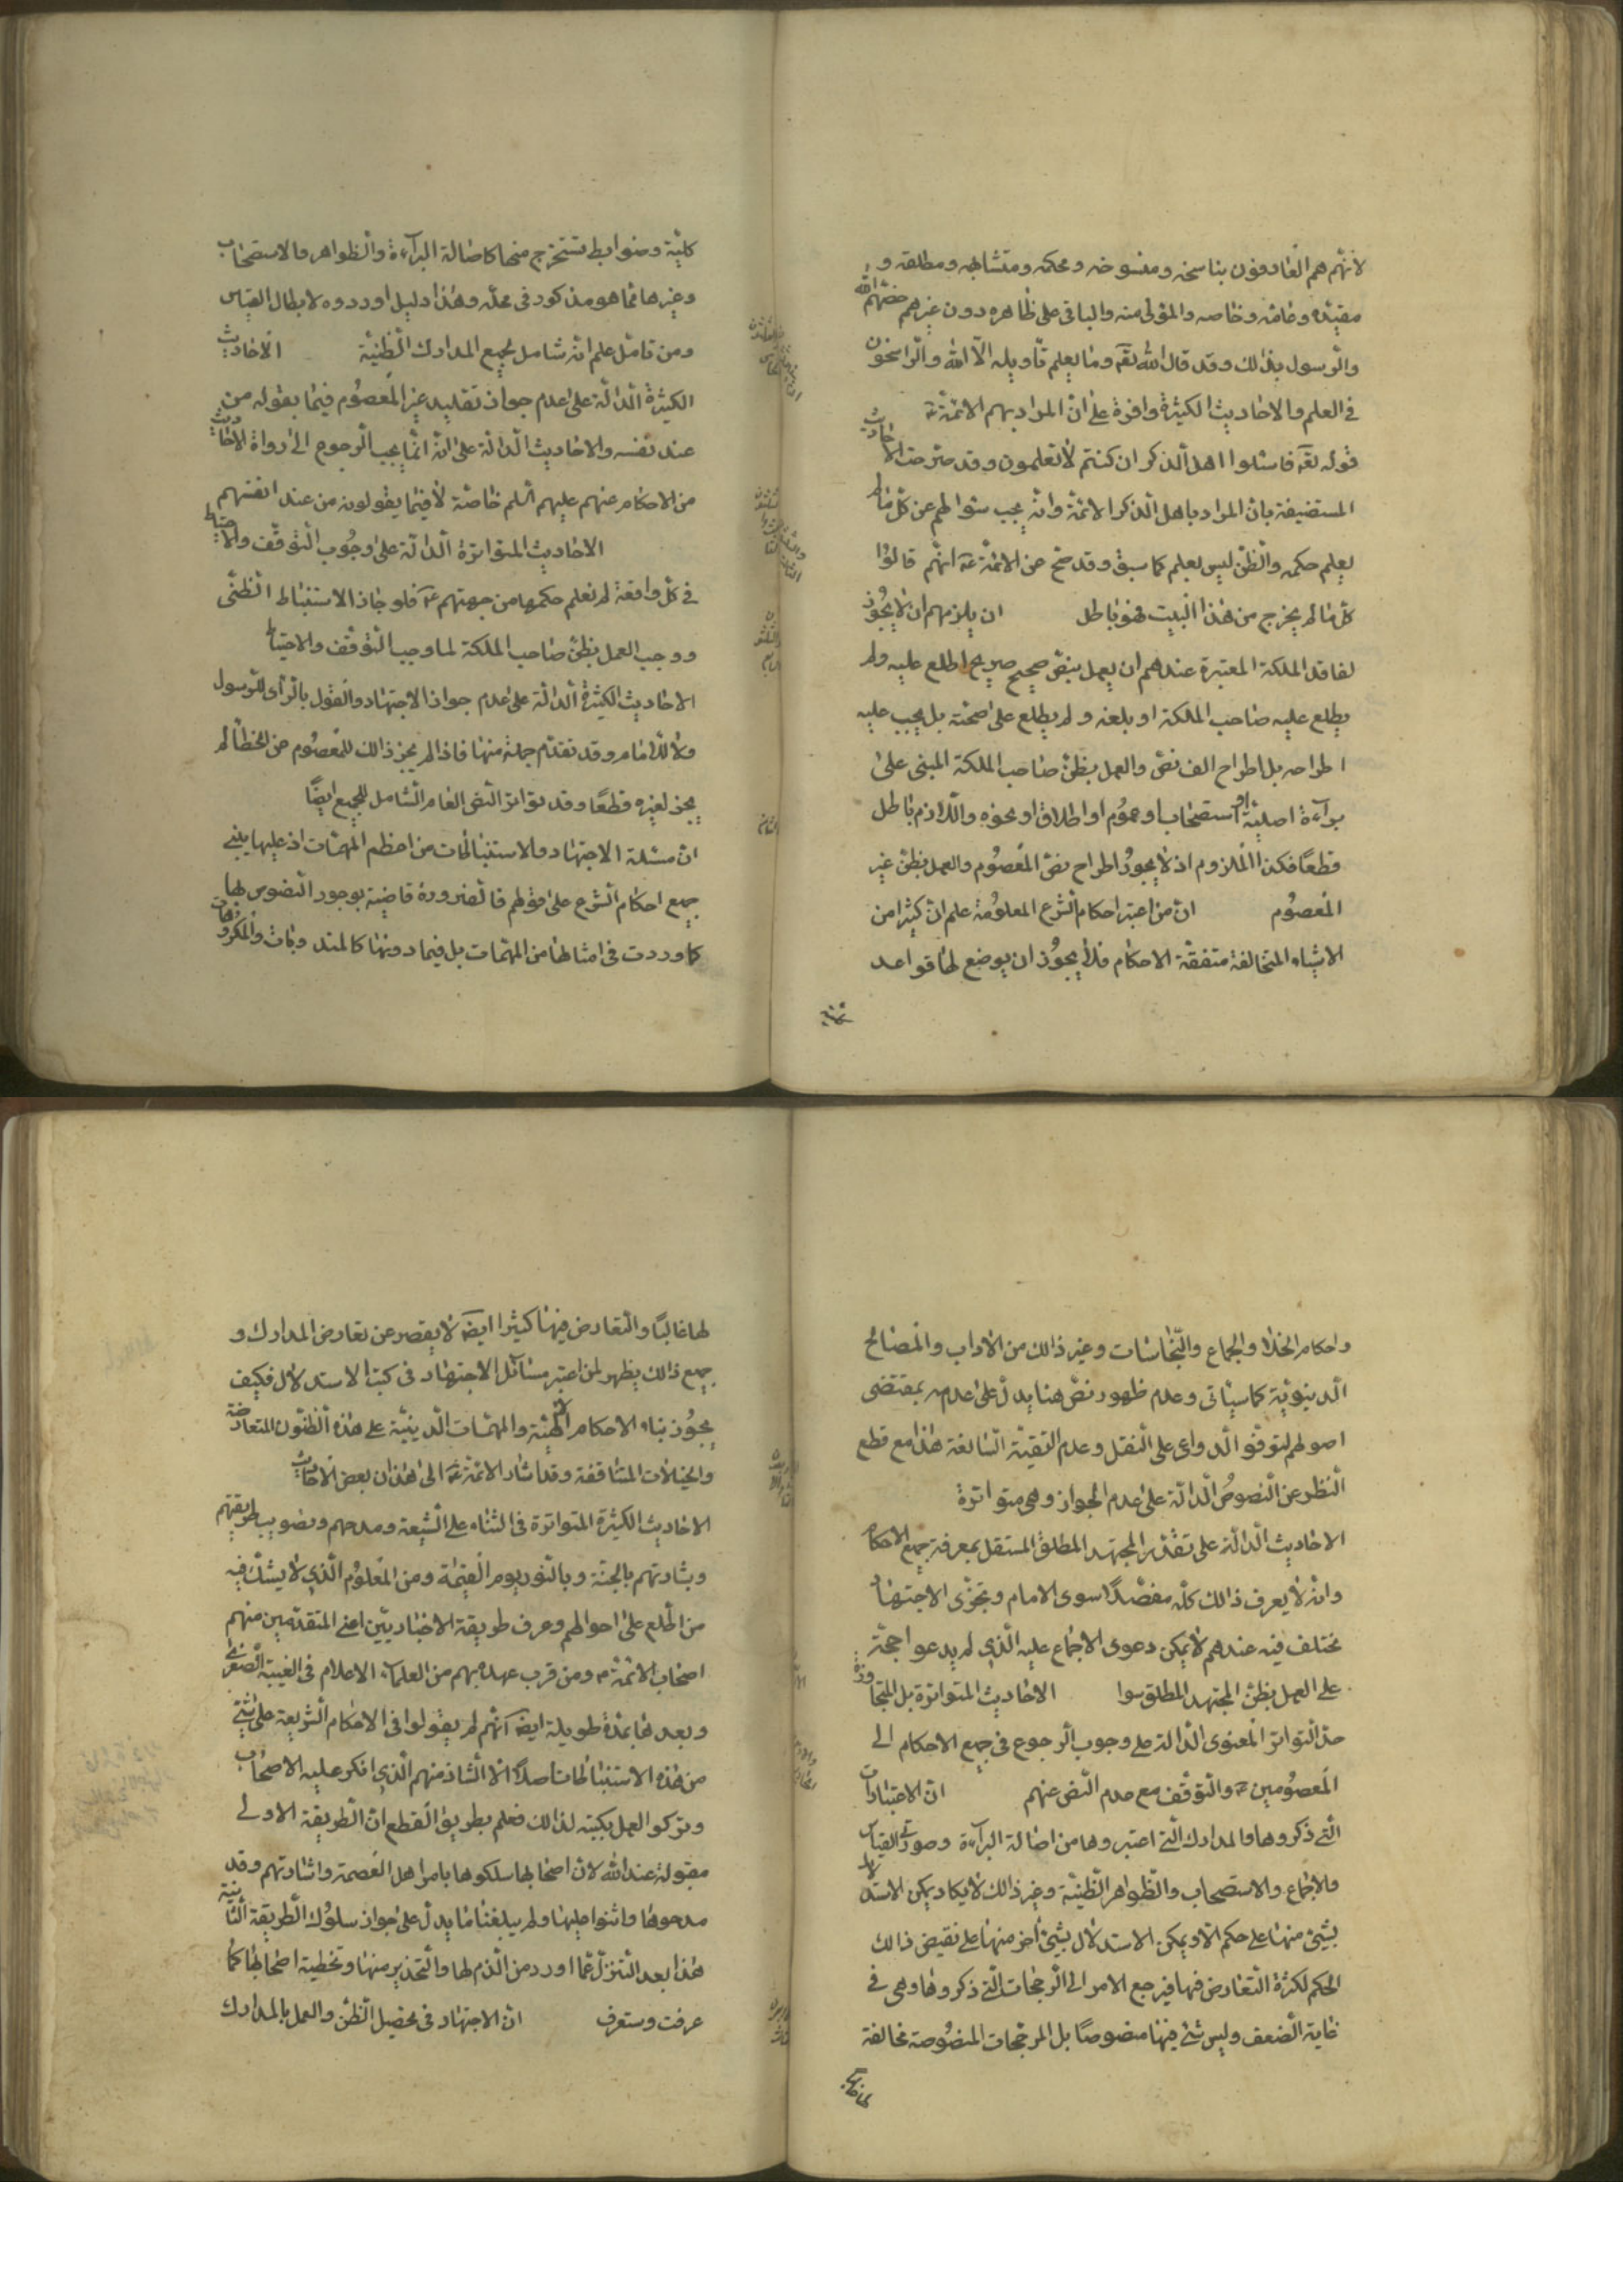 لانهم هم العارفون بناسخه ومنسوخه ومحكمه ومتشابهه ومطلقه و
مقيده وعامه وخاصه والمؤل منه والباقي على ظاهره دون غيرهم خصهم الله
والرسول بذلك وقد قال الله تعه وما يعلم تاويله الا الله والراسخون
في العلم والاحاديث الكثيرة وافرة على ان المراد بهم الائمة ع
قوله تعه فاسئلوا اهل الذكر ان كنتم لا تعلمون وقد صرحت الاحاديث
المستفيضة بان المراد باهل الذكر الائمة وانه يجب سئوالهم عن كل ما لم
يعلم حكمه والظن ليس بعلم كما سبق وقد صح عن الائمة ع انهم قالوا
كل ما لم يخرج من هذا البيت فهو باطل ان يلزمهم ان لا يجوز
لفاقد الملكة المعتبرة عندهم ان يعمل بنص صحيح صريح اطلع عليه ولم
يطلع عليه صاحب الملكة او بلغه ولم يطلع على صحته بل يجب عليه
اطراحه بل اطراح الف نص والعمل بظن صاحب الملكة المبني على
براءة اصلية او استصحاب او عموم او اطلاق او نحوه واللازم باطل
قطعا فكذا الملزوم اذ لا يجوز اطراح نص المعصوم والعمل بظن غير
المعصوم ان من اعتبر احكام الشرع المعلومة علم ان كثيرا من
الاشياء المتخالفة متفقة الاحكام فلا يجوز ان يوضع لها قواعد
كلية وضوابط تستخرج منها كاصالة البراءة والظواهر والاستصحاب
وغيرها مما هو مذكور في محله وهذا دليل اوردوه لابطال القياس
ومن تامل علم انه شامل لجميع المدارك الظنية الاحاديث
الكثيرة الدالة على عدم جواز تقليد غير المعصوم فيما يقوله من
عند نفسه والاحاديث الدالة على انه انما يجب الرجوع الى رواة الاحاديث
من الاحكام عنهم عليهم السلم خاصة لا فيما يقولون من عند انفسهم
الاحاديث المتواترة الدالة على وجوب التوقف والاحتياط
في كل واقعة لم نعلم حكمها من جهتهم ع فلو جاز الاستنباط الظني
ووجب العمل بظن صاحب الملكة لما وجب التوقف والاحتياط
الاحاديث الكثيرة الدالة على عدم جواز الاجتهاد والقول بالراى للرسول
ولا للامام وقد تقدم جملة منها فاذا لم يجز ذلك للمعصوم من الخطأ لم
يجز لغيره قطعا وقد تواتر النص العام الشامل للجميع ايضا
ان مسئلة الاجتهاد والاستنباطات من اعظم المهمات اذ عليها يبني
جميع احكام الشرع على قولهم فالضرورة قاضية بوجود النصوص بها
كما وردت في امثالها من المهمات بل فيما دونها كالمندوبات والمكروهات
واحكام الخلاء والجماع والنجاسات وغير ذلك من الاداب والمصالح
الدينوية كما سيأتي وعدم ظهور نص هنا يدل على عدمه بمقتضى
اصولهم لتوفر الدواعي على النقل وعدم التقية السائغة هذا مع قطع
النظر عن النصوص الدالة على عدم الجواز وهي متواترة
الاحاديث الدالة على تعذر المجتهد المطلق المستقل بمعرفة جميع الاحكام
وانه لا يعرف ذلك كله مفصلا سوى الامام وتجزى الاجتهاد
مختلف فيه عندهم لا يمكن دعوى الاجماع عليه الذي لم يدعوا حجة
على العمل بظن المجتهد المطلق سوا الاحاديث المتواترة بل المتجاوزة
حد التواتر المعنوى الدالة على وجوب الرجوع في جميع الاحكام الى
المعصومين ع والتوقف مع عدم النص عنهم ان الاعتبارات
التي ذكروها والمدارك التي اعتبروها من اصالة البراءة وصورتي القياس
والاجماع والاستصحاب والظواهر الظنية وغير ذلك لا يكاد يمكن الاستدلال
بشيئ منها على حكم الا ويمكن الاستدلال بشيئ اخر منها على نقيض ذلك
الحكم لكثرة التعارض فيها فيرجع الامر الى الترجيحات التي ذكروها وهي في
غاية الضعف وليس شئ فيها منصوصا بل المرجحات المنصوصة مخالفة
لها غالبا والتعارض فيها كثيرا ايضه لا يقصر عن تعارض المدارك و
جميع ذلك يظهر لمن اعتبر مسائل الاجتهاد في كتب الاستدلال فكيف
يجوز بناء الاحكام الالهية والمهمات الدينية على هذه الظنون المتعارضة
والخيالات المتناقضة وقد اشار الائمة ع الى هذا في بعض الاحاديث
الاحاديث الكثيرة المتواترة في الثناء على الشيعة ومدحهم وتصويب طريقتهم
وبشارتهم بالجنة وبالنور يوم القيمة ومن المعلوم الذي لا يشك فيه
من اطلع على احوالهم وعرف طريقة الاخباريين اعني المتقدمين منهم
اصحاب الائمة ع ومن قرب عهده بهم من العلماء الاعلام في الغيبة الصغرى
وبعدها بمدة طويلة ايضه انهم لم يقولوا في الاحكام الشريعة على شئ
من هذه الاستنباطات اصلا الا الشاذ منهم الذي انكر عليه الاصحاب
وتركوا العمل بكتبه لذلك فعلم بطريق القطع ان الطريقة الاولى
مقبولة عند الله لان اصحابها سلكوها بامر اهل العصمة واشارتهم وقد
مدحوها واثنوا عليها ولم يبلغنا ما يدل على جواز سلوك الطريقة الثانية
هذا بعد التنزل عما اورد من الذم لها والتحذير منها وتخطية اصحابها كما
عرفت وستعرف ان الاجتهاد في تحصيل الظن والعمل بالمدارك